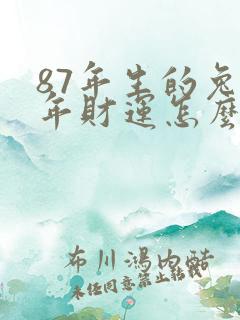 87年生的兔
年财运怎麽
布川鸿内酷
未经同意禁止转载